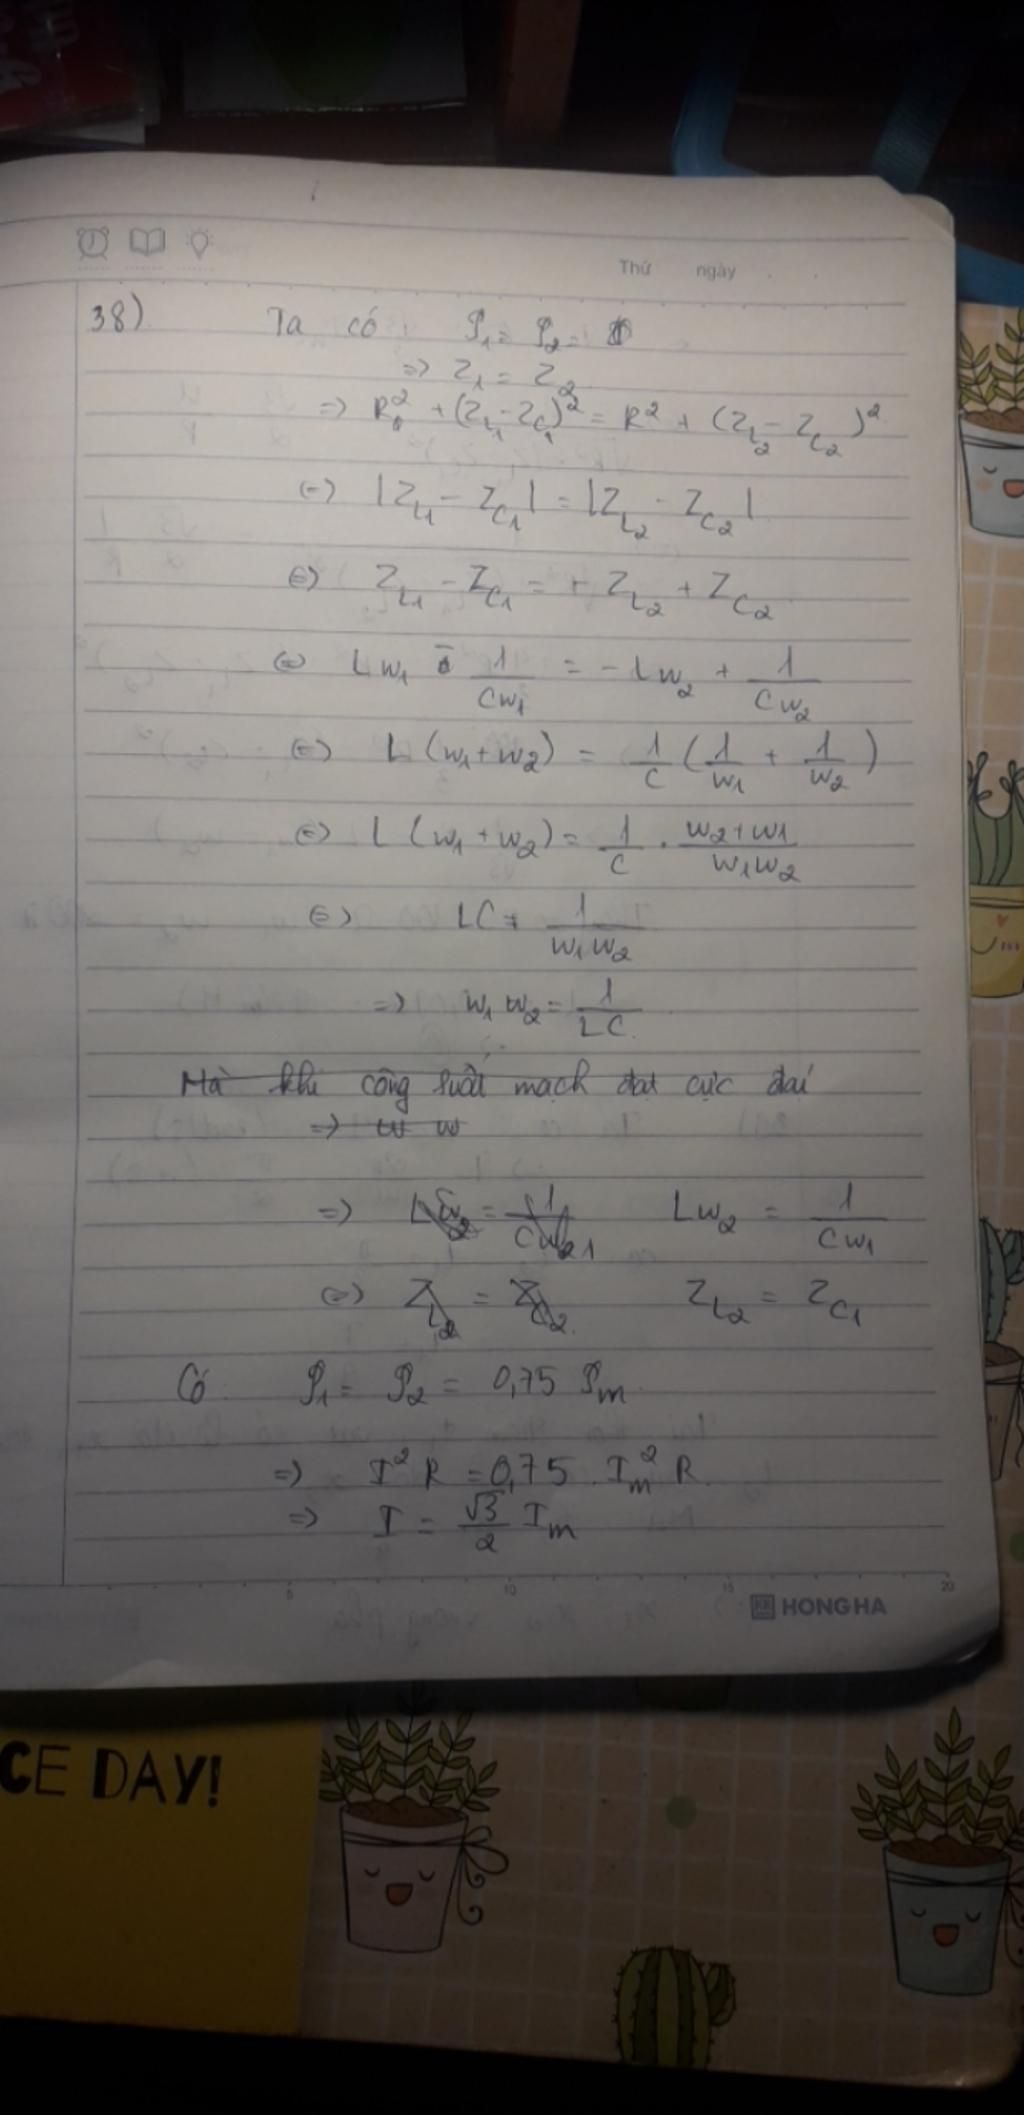 Thứ ngày
38) Ta có P₁ = P₂ =
=> Z₁ = Z₂
=> R² + (Z_L1 - Z_C1)² = R² + (Z_L2 - Z_C2)²
(=) |Z_L1 - Z_C1| = |Z_L2 - Z_C2|
(=) Z_L1 - Z_C1 = - Z_L2 + Z_C2
(=) Lw₁ - 1/(Cw₁) = -Lw₂ + 1/(Cw₂)
(=) L(w₁+w₂) = 1/C (1/w₁ + 1/w₂)
(=) L(w₁+w₂) = 1/C . (w₂+w₁)/(w₁w₂)
(=) LC = 1/(w₁w₂)
=> w₁w₂ = 1/(LC)
Mà khi công suất mạch đạt cực đại
=> w w
=> Lw₂ = 1/(Cw₁)
(=) Z_L2 = Z_C1
Có P₁ = P₂ = 0,75 Pm
=> I²R = 0,75 . Im² R
=> I = √3/2 Im
5 10 15 20
HONG HA
CE DAY!